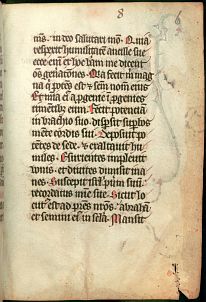 8
6
meus. in deo salutari meo Quia
respexit humilitatem ancille sue
ecce enim ex hoc beatam me dicent
oms generationes Quia fecit michi mag
na qui potens est & scm nomen eius
Et mia eius a progenie in progenies
timentibus eum Fecit potentiam
in brachio suo dispersit superbos
mente cordis sui Deposuit po
tentes de sede & exaltauit hu
miles Esurientes impleuit
bonis et diuites dimisit ina
nes Suscepit isrl puerum suum
recordatus mie sue Sicut lo
cutus est ad patres nros abraham
et semini eius in secula Mansit